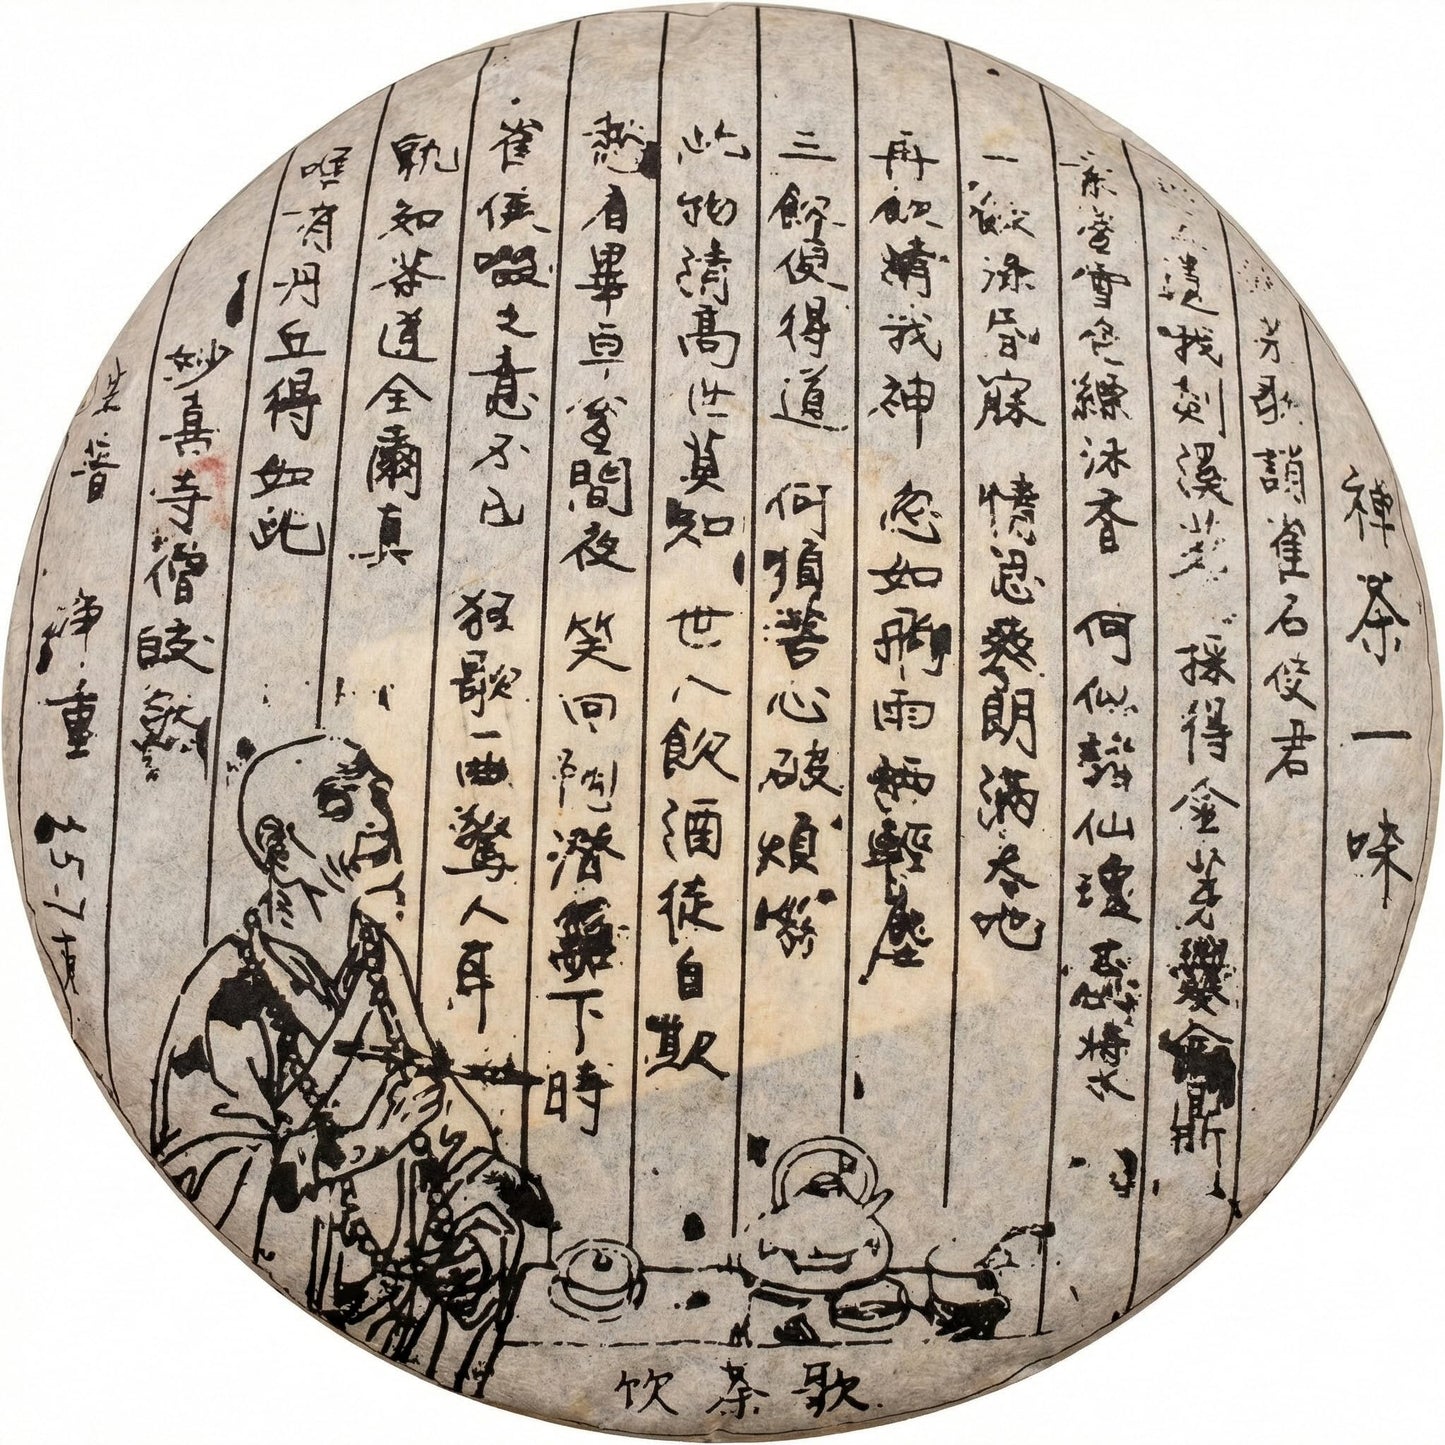 禅茶一味
茶歌誚崔石使君
遺我剡溪茗 採得金芽爨金鼎
素瓷雪色縹沫香 何似諸仙瓊蕊漿
一飲滌昏寐 情思爽朗滿天地
再飲清我神 忽如飛雨洒輕塵
三飲便得道 何須苦心破煩惱
此物清高世莫知 世人飲酒徒自欺
愁看畢卓瓮間夜 笑向陶潛籬下時
崔侯啜之意不已 狂歌一曲驚人耳
孰知茶道全爾真
唯有丹丘得如此
妙喜寺僧皎然
茶 普
净重 357克
饮茶歌